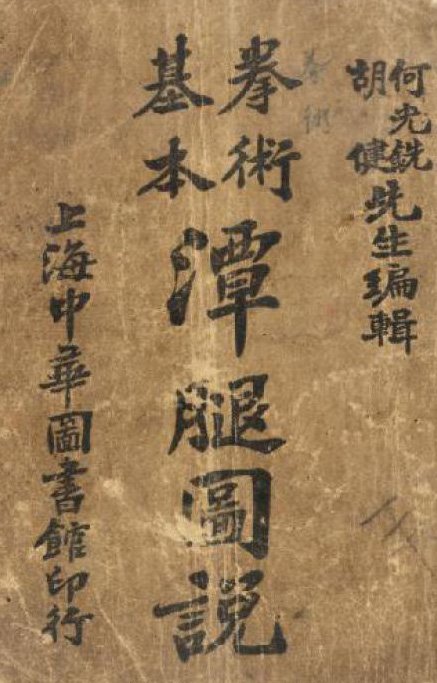 何光銑
胡健
先生編輯
拳術
基本
潭腿圖説
上海中華圖書館印行